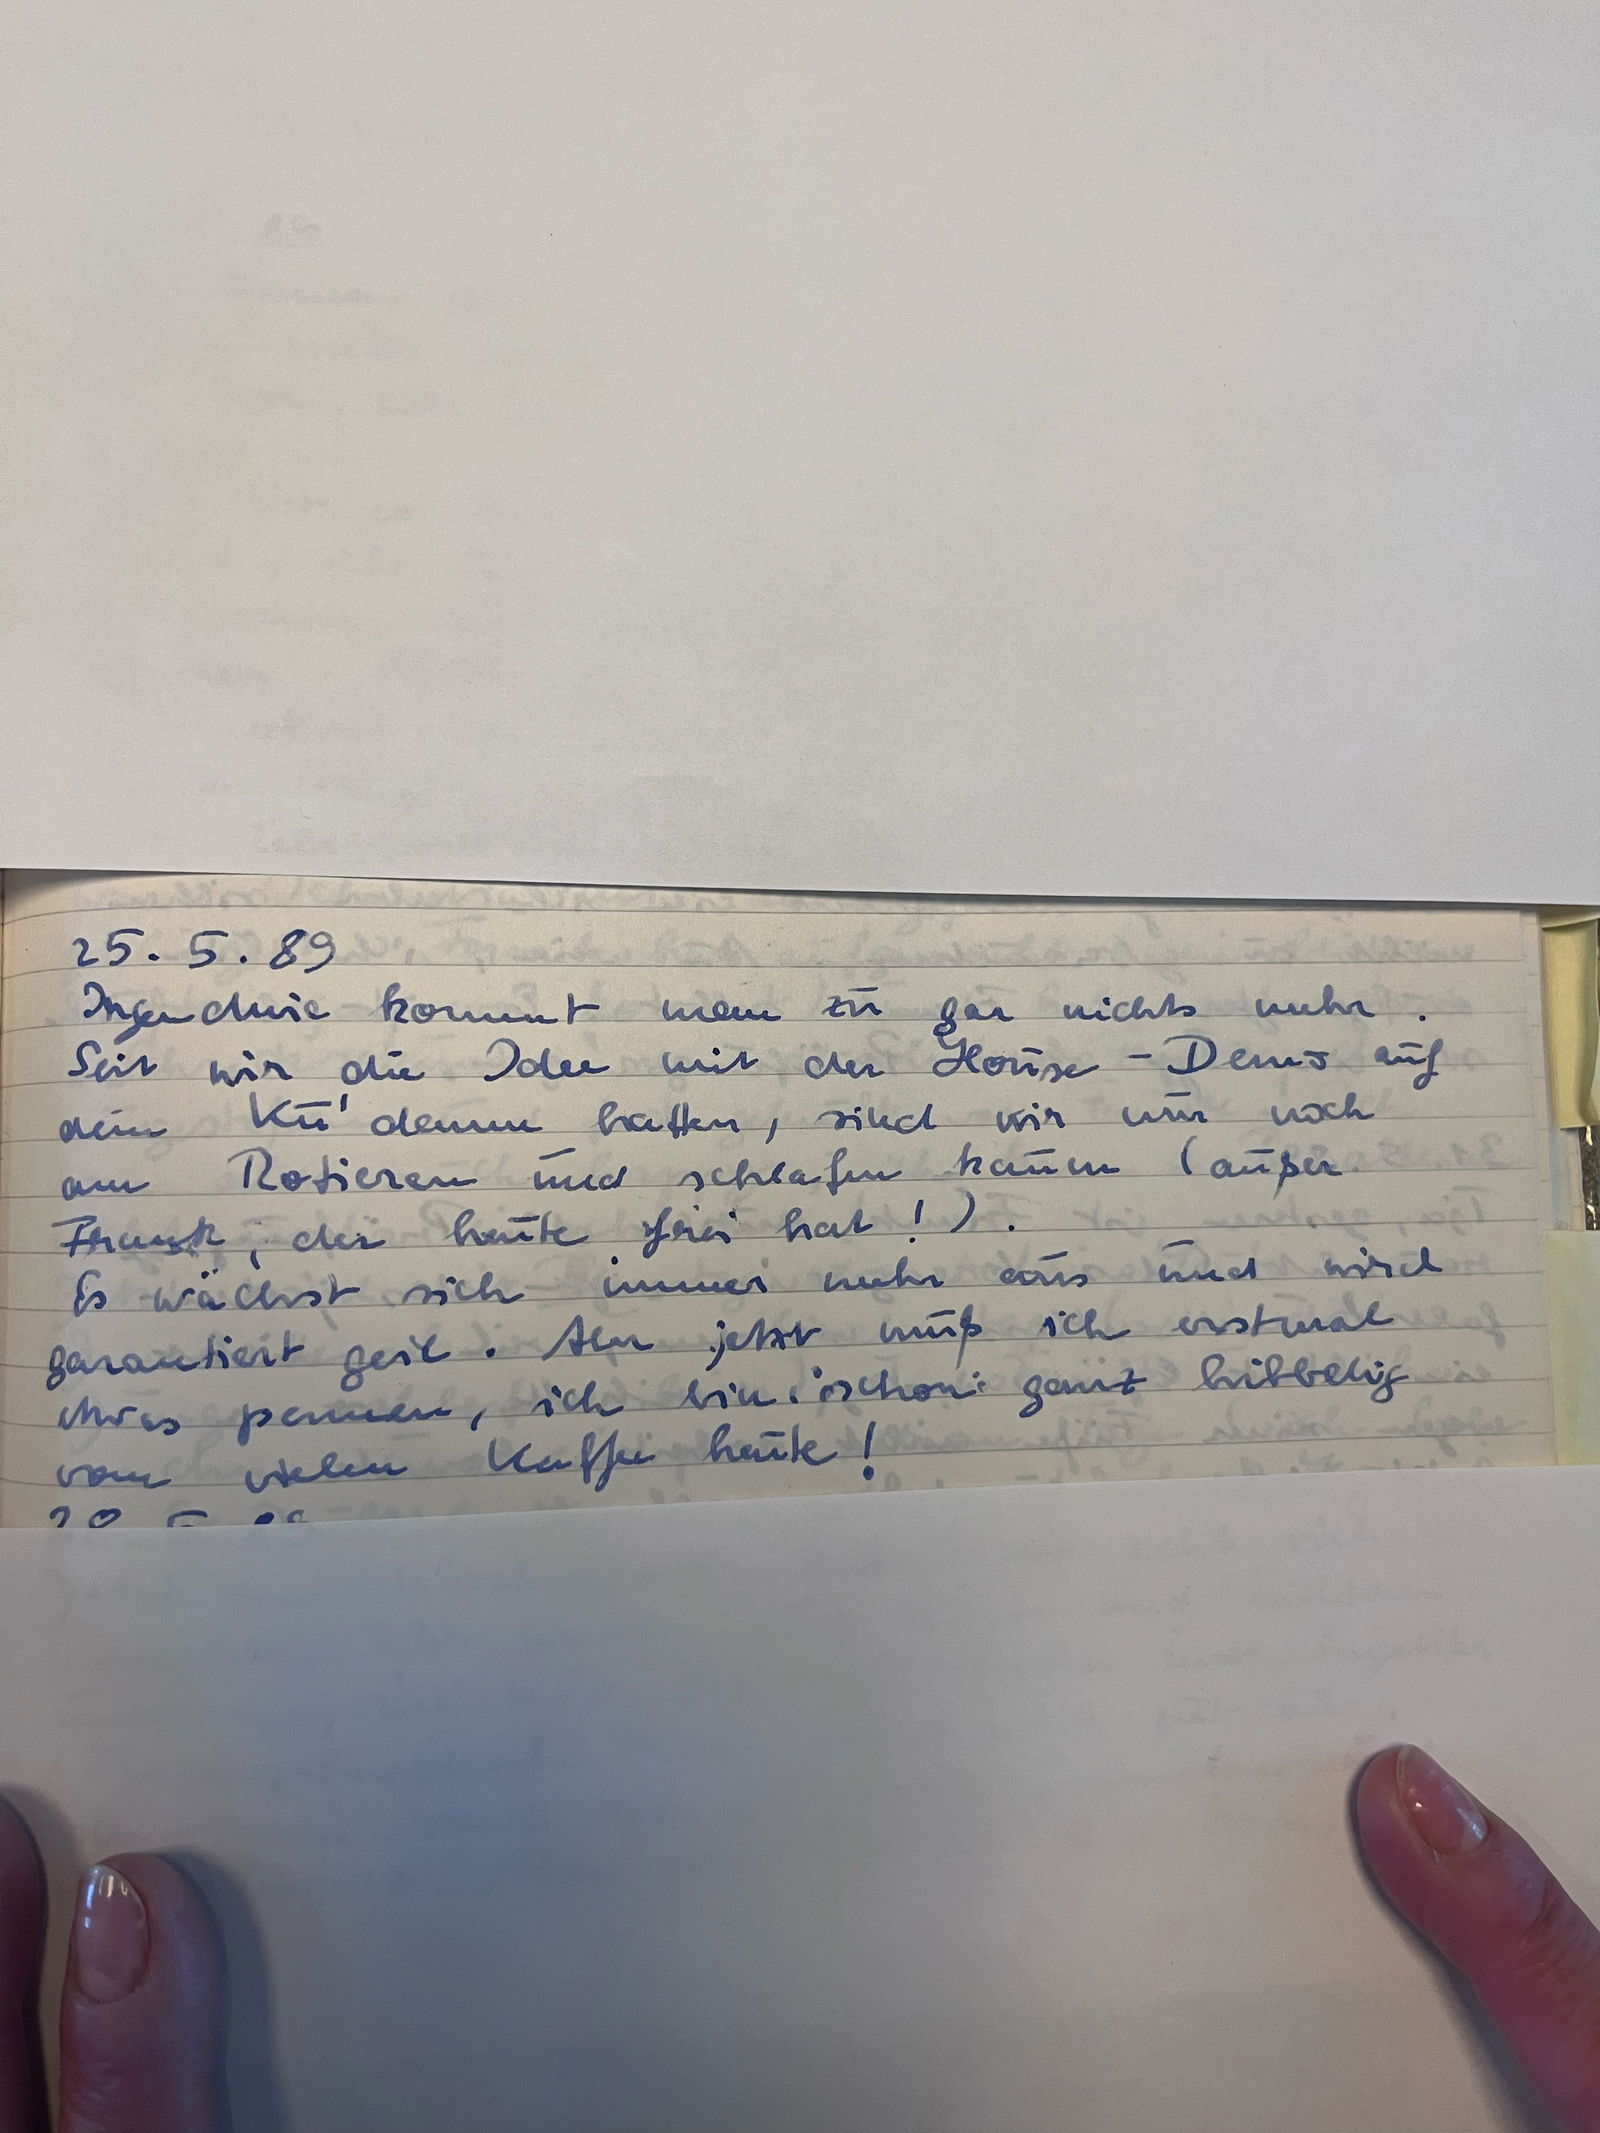 25.5.89
Irgendwie kommt man zu gar nichts mehr.
Seit wir die Idee mit der House-Demo auf
dem Ku'damm hatten, sind wir nur noch
am Rotieren und schlafen kaum (außer
Frank, der heute frei hat!).
Es wächst sich immer mehr aus und wird
garantiert geil. Aber jetzt muß ich erstmal
etwas pennen, ich bin schon ganz hibbelig
vom vielen Kaffee heute!